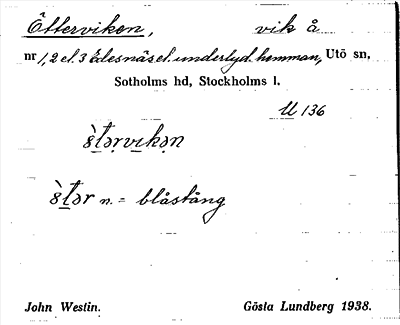 Ötterviken, vik å
nr 1, 2 el. 3 Edesnäs el. underlyd. hemman, Utö sn,
Sotholms hd, Stockholms l.
U 136
n. = blåstång
John Westin. Gösta Lundberg 1938.